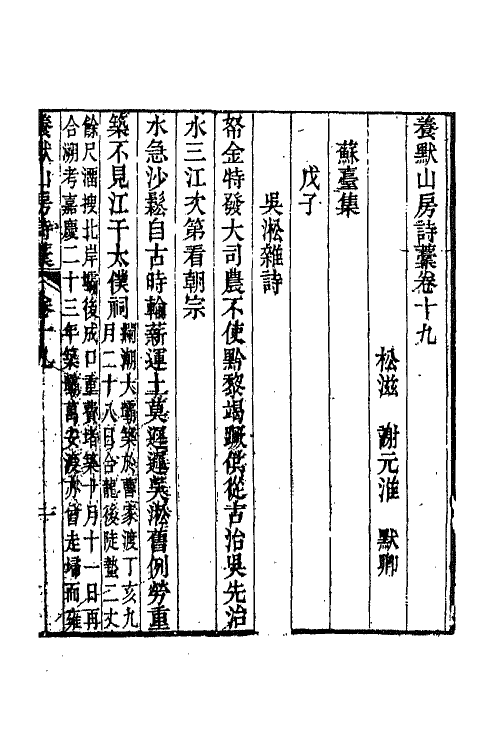 養默山房詩藁卷十九
松滋　謝元淮　默卿
蘇臺集
戊子
吳淞雜詩
帑金特發大司農不使黔黎竭蹶供從古治吳先治
水三江次第看朝宗
水急沙鬆自古時翰薪運土莫遲遲吳淞舊例勞重
築不見江干太僕祠
攔潮大壩築於曹家渡丁亥九
月二十八日合龍後陡蟄二丈
餘尺湮搜北岸壩後成口重費堵築十月十一日再
合溯考嘉慶二十三年築壩萬安渡亦曾走埽而雍
養默山房詩藁　卷十九　一